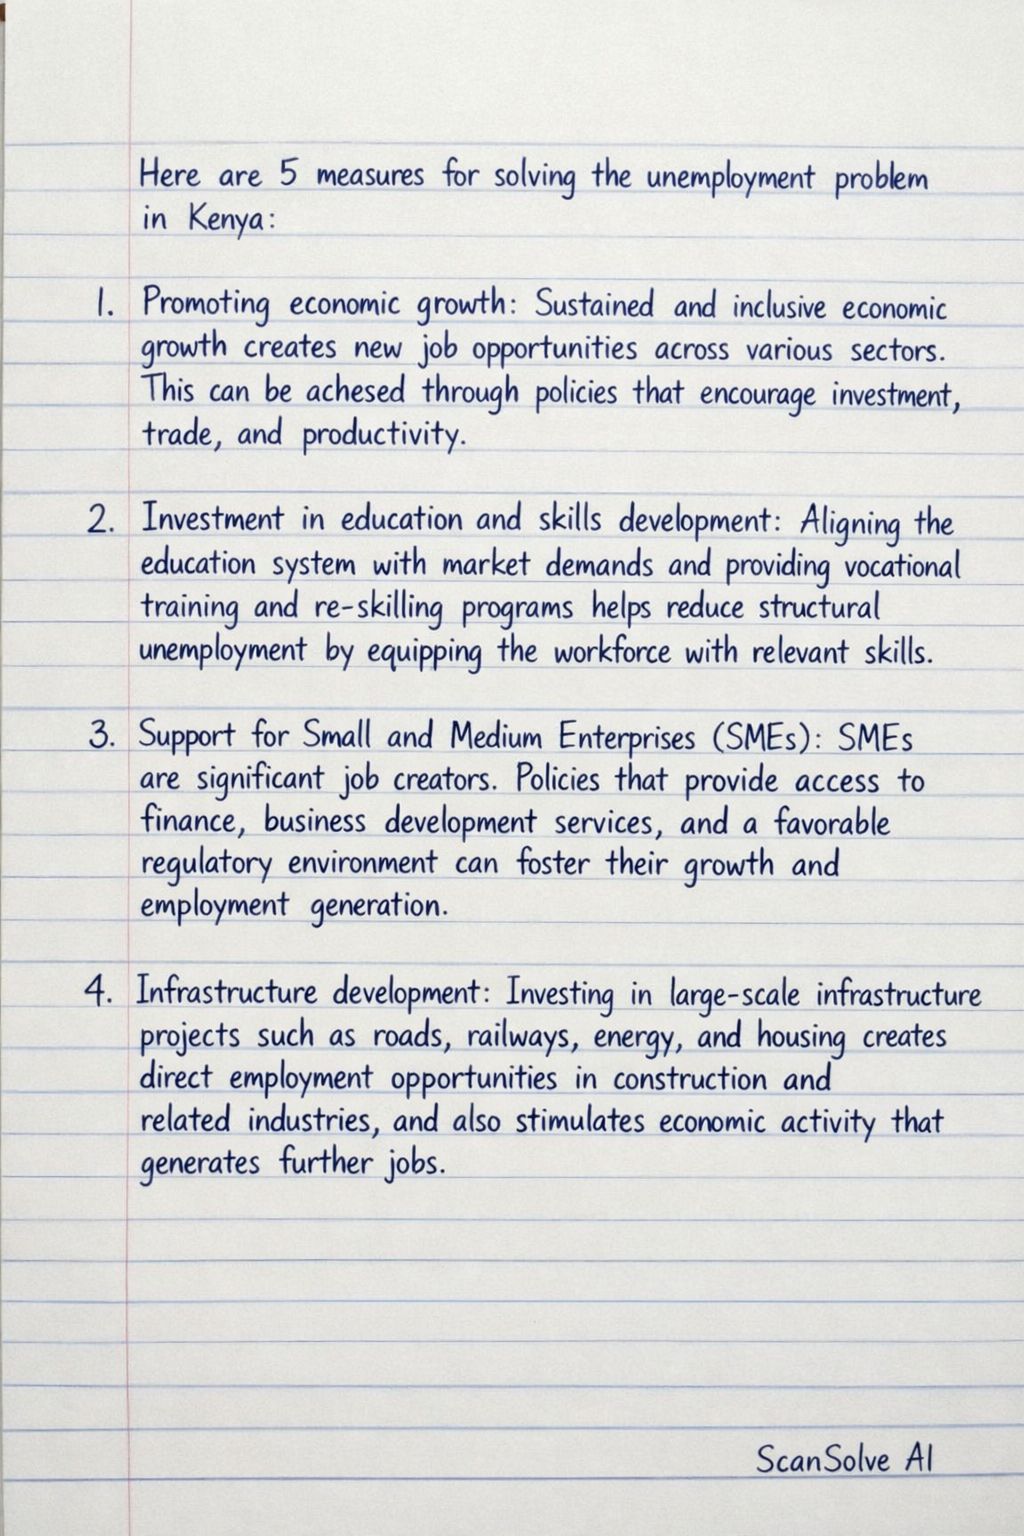 Here are 5 measures for solving the unemployment problem
in Kenya:
1. Promoting economic growth: Sustained and inclusive economic
growth creates new job opportunities across various sectors.
This can be achesed through policies that encourage investment,
trade, and productivity.
2. Investment in education and skills development: Aligning the
education system with market demands and providing vocational
training and re-skilling programs helps reduce structural
unemployment by equipping the workforce with relevant skills.
3. Support for Small and Medium Enterprises (SMEs): SMEs
are significant job creators. Policies that provide access to
finance, business development services, and a favorable
regulatory environment can foster their growth and
employment generation.
4. Infrastructure development: Investing in large-scale infrastructure
projects such as roads, railways, energy, and housing creates
direct employment opportunities in construction and
related industries, and also stimulates economic activity that
generates further jobs.
ScanSolve AI